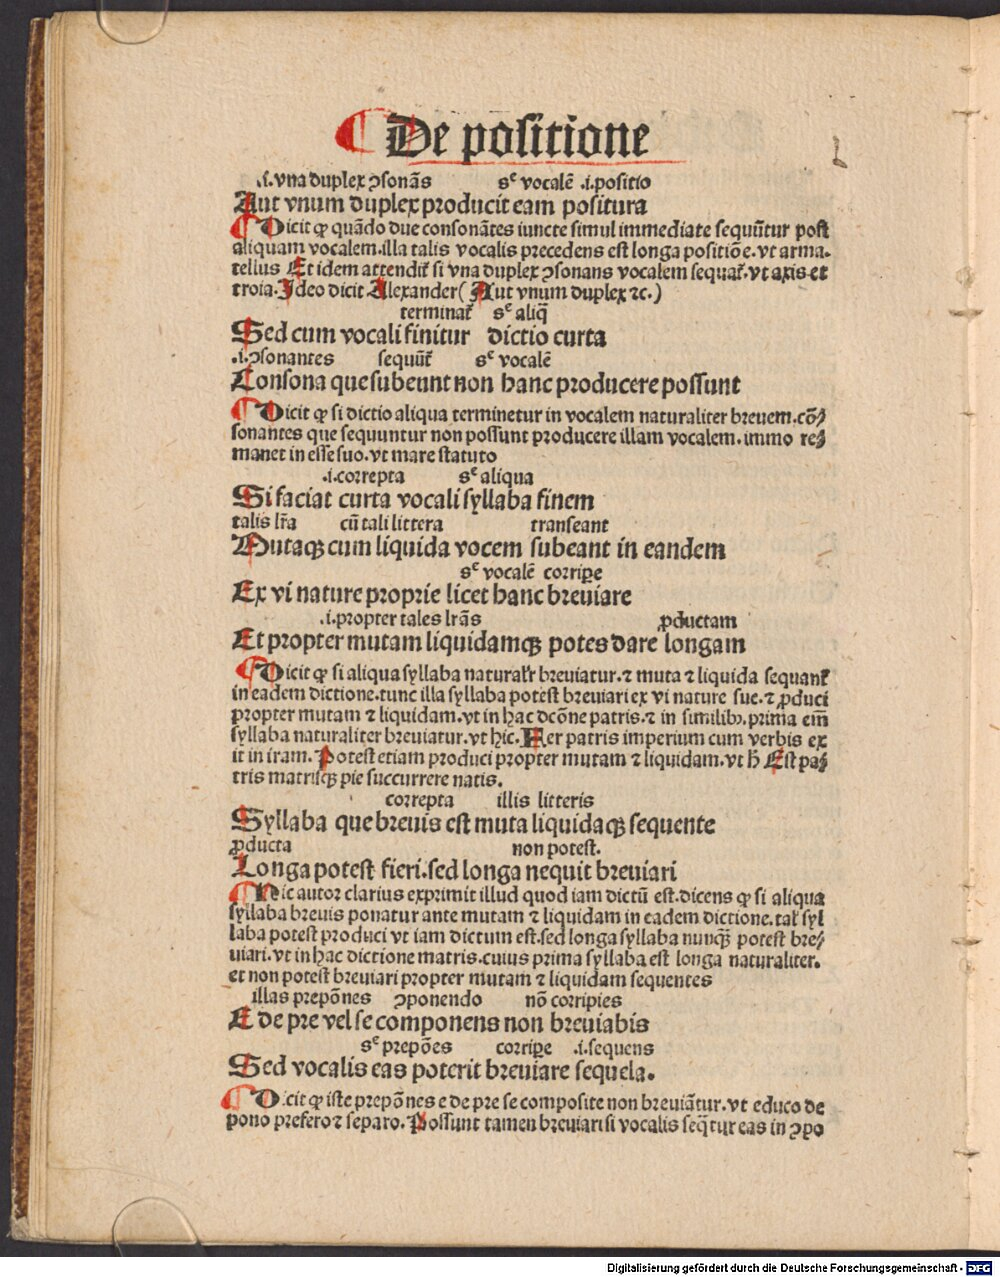 De positione
.i. vna duplex ꝯsonãs sᶜ vocalẽ .i. positio
Aut vnum duplex producit eam positura
Dicit ꝙ quãdo due consonãtes iuncte simul immediate sequũtur post
aliquam vocalem. illa talis vocalis precedens est longa positiõe. vt arma.
tellus Et idem attendit̃ si vna duplex ꝯsonans vocalem sequat̃. vt axis et
troia. Ideo dicit Alexander (Aut vnum duplex ⁊c.)
terminat̃ sᶜ aliq̃
Sed cum vocali finitur dictio curta
.i. ꝯsonantes sequũt̃ sᶜ vocalẽ
Consona que subeunt non hanc producere possunt
Dicit ꝙ si dictio aliqua terminetur in vocalem naturaliter breuem. cõ⸗
sonantes que sequuntur non possunt producere illam vocalem. immo re⸗
manet in esse suo. vt mare statuto
.i. correpta sᶜ aliqua
Si faciat curta vocali syllaba finem
talis lr̃a cũ tali littera transeant
Mutaqꝫ cum liquida vocem subeant in eandem
sᶜ vocalẽ corripe
Ex vi nature proprie licet hanc breuiare
.i. propter tales lr̃as ꝓductam
Et propter mutam liquidamqꝫ potes dare longam
Dicit ꝙ si aliqua syllaba natural̃r breuiatur. ⁊ muta ⁊ liquida sequant̃
in eadem dictione. tunc illa syllaba potest breuiari ex vi nature sue. ⁊ ꝓduci
propter mutam ⁊ liquidam. vt in hac dcõne patris. ⁊ in similibꝰ. prima em̃
syllaba naturaliter breuiatur. vt hic. Fer patris imperium cum verbis ex
it in iram. Potest etiam produci propter mutam ⁊ liquidam. vt h̃ Est pa⸗
tris matrisqꝫ pie succurrere natis.
correpta illis litteris
Syllaba que breuis est muta liquidaqꝫ sequente
ꝓducta non potest.
Longa potest fieri. sed longa nequit breuiari
Hic autor clarius exprimit illud quod iam dictũ est. dicens ꝙ si aliqua
syllaba breuis ponatur ante mutam ⁊ liquidam in eadem dictione. tal̃ syl
laba potest produci vt iam dictum est. sed longa syllaba nunqꝫ̃ potest bre⸗
uiari. vt in hac dictione matris. cuius prima syllaba est longa naturaliter.
et non potest breuiari propter mutam ⁊ liquidam sequentes
illas prepõnes ꝯponendo nõ corripies
E de pre vel se componens non breuiabis
sᶜ prepões corripe .i. sequens
Sed vocalis eas poterit breuiare sequela.
Dicit ꝙ iste prepõnes e de pre se composite non breuiãtur. vt educo de
pono prefero ⁊ separo. Possunt tamen breuiari si vocalis seq̃tur eas in ꝯpo
Digitalisierung gefördert durch die Deutsche Forschungsgemeinschaft - DFG